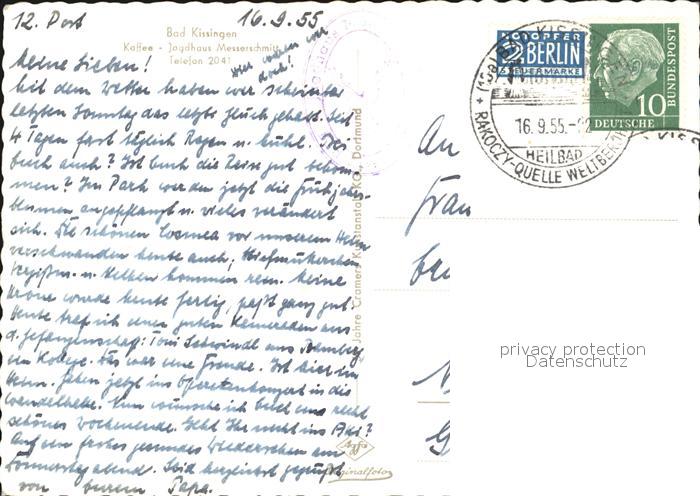 12. Post 16.9.55
Bad Kissingen
Kaffee - Jagdhaus Messerschmitt
Telefon 2041
hier waren wir
doch!
Meine Lieben!
Mit dem Wetter haben wir scheinbar
letzten Sonntag das letzte Glück gehabt. Seit
4 Tagen fast täglich Regen u. kühl. Bei
Euch auch? Ist Euch die Reise gut bekom-
men? Im Park werden jetzt die Frühjahrs-
blumen angepflanzt u. vieles verändert
sich. Die schönen Cosmea vor unserem Heim
verschwanden heute auch, Stiefmütterchen
u. Nelken kommen rein. Meine
Krone wurde heute fertig, paßt ganz gut.
Heute traf ich einen guten Kameraden aus
d. Gefangenschaft: Toni aus Bamberg
ein Kollege. Das war eine Freude. Ist hier im
Heim. Gehen jetzt ins Operettenkonzert in die
Wandelhalle. Nun wünsche ich Euch ein recht
schönes Wochenende. Geht Ihr nicht ins
Auf ein frohes gesundes Wiedersehen am
Donnerstag abend. Seid herzlichst gegrüßt
von Eurem Papa.
Jahre Cramers Kunstanstalt KG., Dortmund
Agfa
Originalfoto
NOTOPFER
2 BERLIN
STEUERMARKE
DEUTSCHE
BUNDESPOST
10
(13a) BAD KISSINGEN
16.9.55.-
HEILBAD
RAKOCZY-QUELLE WELTBERÜHMT
An
Frau
N
G
privacy protection
Datenschutz